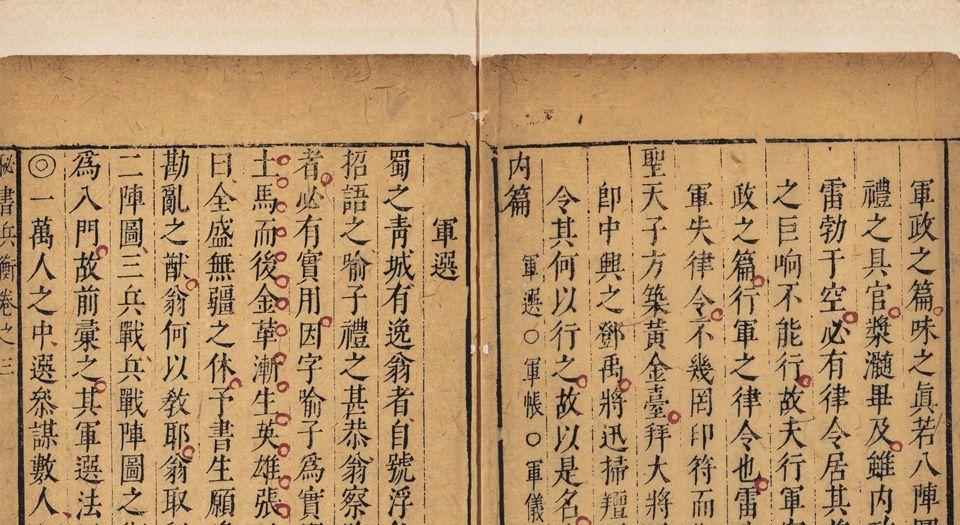 軍政之篇味之眞若八陣
禮之具官槳髓畢及雖内
雷勃于空必有律令居其
之巨响不能行故夫行軍
政之篇行軍之律令也雷
軍失律令不幾罔印符而
聖天子方築黃金臺拜大將
卽中興之鄧禹將迅掃羶
令其何以行之故以是名
内篇 軍選○軍帳○軍儀
軍選
蜀之青城有逸翁者自號浮
招語之喻子禮之甚恭翁察
者必有實用因字喻子爲實
土馬而後金革漸生英雄張
曰全盛無疆之休予書生願
勘亂之猷翁何以敎耶翁取
二陣圖三兵戰兵戰陣圖之
爲入門故前彙之其軍選法
◎一萬人之中選叅謀數人
祕書兵衡 卷之三